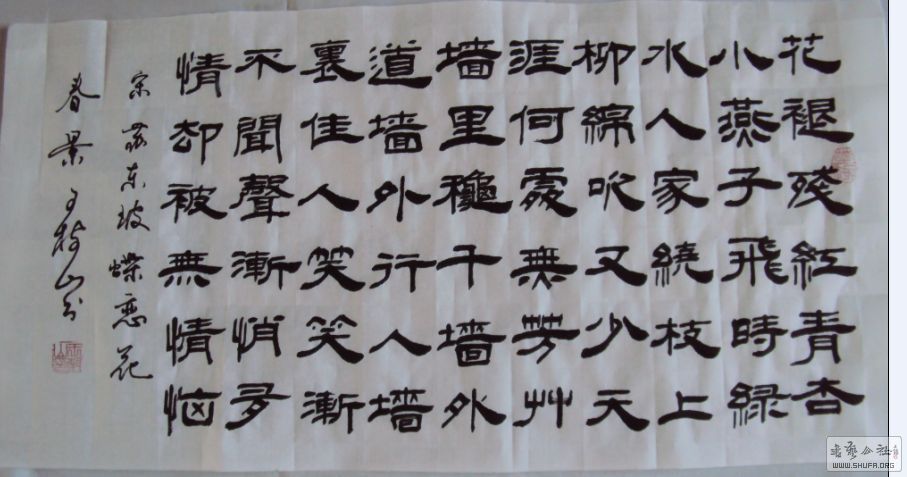 花褪殘紅青杏
小燕子飛時綠
水人家繞枝上
柳綿吹又少天
涯何處無芳艸
墙里穐千墙外
道墙外行人墙
裏佳人笑笑漸
不聞聲漸悄多
情却被無情恼
宋蘇东坡蝶恋花
春景
書藝公社
WWW.SHUFA.ORG